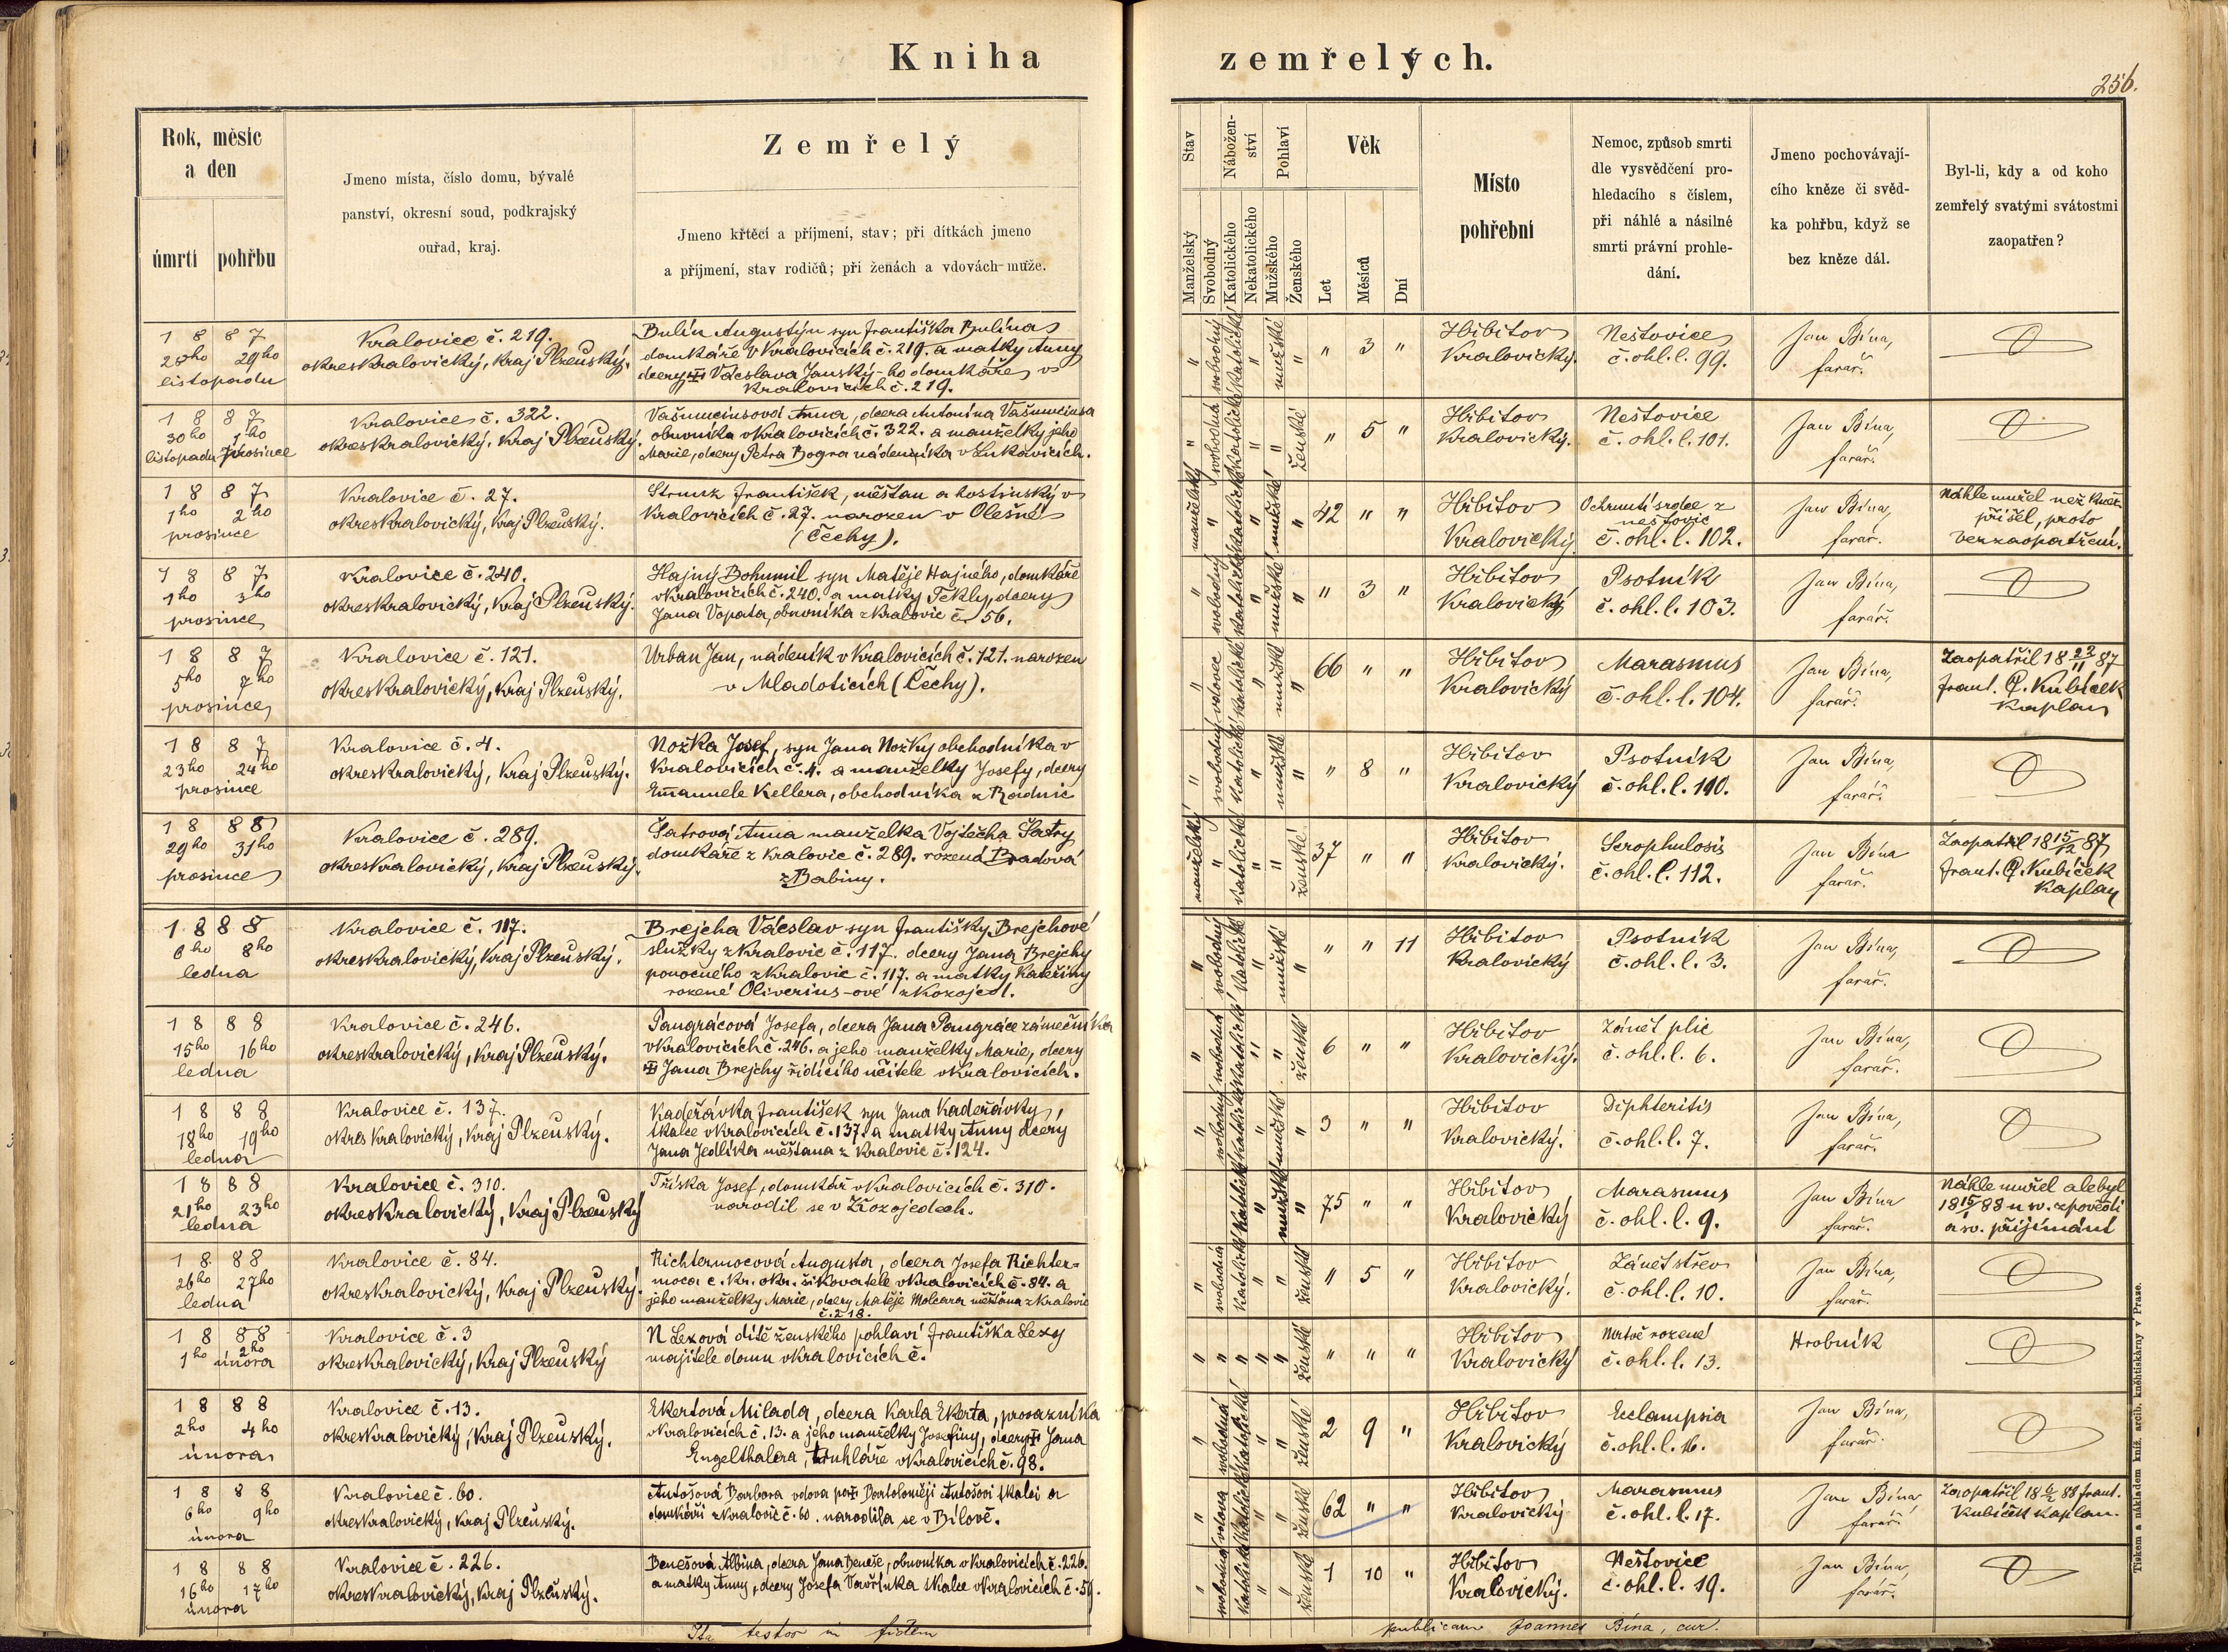 Kniha zemřelých.
256.
Rok, měsíc
a den
úmrtí
pohřbu
Jmeno místa, číslo domu, bývalé
panství, okresní soud, podkrajský
ouřad, kraj.
Zemřelý
Jmeno křtěcí a příjmení, stav; při dítkách jmeno
a příjmení, stav rodičů; při ženách a vdovách muže.
Stav
Manželský
Svobodný
Nábožen-
ství
Katolického
Nekatolického
Pohlaví
Mužského
Ženského
Věk
Let
Měsíců
Dní
Místo
pohřební
Nemoc, způsob smrti
dle vysvědčení pro-
hledacího s číslem,
při náhlé a násilné
smrti právní prohle-
dání.
Jmeno pochovávají-
cího kněze či svěd-
ka pohřbu, když se
bez kněze dál.
Byl-li, kdy a od koho
zemřelý svatými svátostmi
zaopatřen?
1887
28ho 29ho
listopadu
Kralovice č. 219.
okres Kralovický, Kraj Plzeňský.
Bulín Augustýn syn Františka Bulína
domkáře v Kralovicích č. 219. a matky Anny
dcery Václava Janský-ho domkáře v
Kralovicích č. 219.
" svobodný katolické " mužské " " 3 "
Hřbitov
Kralovický.
Neštovice
č. ohl. l. 99.
Jan Bína,
farář.
1887
30ho 1ho
listopadu prosince
Kralovice č. 322.
okres Kralovický, Kraj Plzeňský.
Anna, dcera Antonína
obuvníka v Kralovicích č. 322. a manželky jeho
Marie, dcery Petra Bogra nádenníka v Lukavicích.
" svobodná katolické " " ženské " 5 "
Hřbitov
Kralovický.
Neštovice
č. ohl. l. 101.
Jan Bína,
farář.
1887
1ho 2ho
prosince
Kralovice č. 27.
okres Kralovický, Kraj Plzeňský.
František, měšťan a hostinský v
Kralovicích č. 27. narozen v Olešné
(Čechy).
manželský " katolické " mužské " 42 " "
Hřbitov
Kralovický.
Ochrnutí srdce z
neštovic
č. ohl. l. 102.
Jan Bína,
farář.
Náhle umřel než kněz
přišel, proto
bez zaopatření.
1887
1ho 3ho
prosince
Kralovice č. 240.
okres Kralovický, Kraj Plzeňský.
Hajný Bohumil syn Matěje Hajného, domkáře
v Kralovicích č. 240. a matky Tekly, dcery
Jana Vopata, obuvníka z Kralovic č. 56.
" svobodný katolické " mužské " " 3 "
Hřbitov
Kralovický
Psotník
č. ohl. l. 103.
Jan Bína,
farář.
1887
5ho 7ho
prosince
Kralovice č. 121.
okres Kralovický, Kraj Plzeňský.
Urban Jan, nádeník v Kralovicích č. 121. narozen
v Mladoticích (Čechy).
" vdovec katolické " mužské " 66 " "
Hřbitov
Kralovický
Marasmus
č. ohl. l. 104.
Jan Bína,
farář.
Zaopatřil 18 23/11 87
Frant. P. Kubíček
Kaplan
1887
23ho 24ho
prosince
Kralovice č. 4.
okres Kralovický, Kraj Plzeňský.
Nožka Josef, syn Jana Nožky obchodníka v
Kralovicích č. 4. a manželky Josefy, dcery
Emanuele Kellera, obchodníka z Radnic
" svobodný katolické " mužské " " 8 "
Hřbitov
Kralovický
Psotník
č. ohl. l. 110.
Jan Bína,
farář.
1888
29ho 31ho
prosince
Kralovice č. 289.
okres Kralovický, Kraj Plzeňský.
Šatrová Anna manželka Vojtěcha Šatry
domkáře z Kralovic č. 289. rozená Bradová
z Babiny.
manželský " katolické " " ženské 37 " "
Hřbitov
Kralovický.
Scrophulosis
č. ohl. l. 112.
Jan Bína
farář.
Zaopatřil 18 15/12 87
Frant. P. Kubíček
Kaplan
1888
6ho 8ho
ledna
Kralovice č. 117.
okres Kralovický, Kraj Plzeňský.
Brejcha Václav syn Františky Brejchové
služky z Kralovic č. 117. dcery Jana Brejchy
ponocného z Kralovic č. 117. a matky Kateřiny
rozené Oliverius-ové z Kozojed.
" svobodný katolické " mužské " " " 11
Hřbitov
Kralovický
Psotník
č. ohl. l. 3.
Jan Bína,
farář.
1888
15ho 16ho
ledna
Kralovice č. 246.
okres Kralovický, Kraj Plzeňský.
Pangrácová Josefa, dcera Jana Pangráce zámečníka
v Kralovicích č. 246. a jeho manželky Marie, dcery
Jana Brejchy řídícího učitele v Kralovicích.
" svobodná katolické " " ženské 6 " "
Hřbitov
Kralovický.
Zánět plic
č. ohl. l. 6.
Jan Bína,
farář.
1888
18ho 19ho
ledna
Kralovice č. 137.
okres Kralovický, Kraj Plzeňský.
Kadeřávka František syn Jana Kadeřávky,
tkalce v Kralovicích č. 137. a matky Anny dcery
Jana Jedlíka měšťana z Kralovic č. 124.
" svobodný katolické " mužské " 3 " "
Hřbitov
Kralovický.
Diphteritis
č. ohl. l. 7.
Jan Bína,
farář.
1888
21ho 23ho
ledna
Kralovice č. 310.
okres Kralovický, Kraj Plzeňský
Tříska Josef, domkář v Kralovicích č. 310.
narodil se v Kozojedech.
katolické " mužské " 75 " "
Hřbitov
Kralovický
Marasmus
č. ohl. l. 9.
Jan Bína
farář.
Náhle umřel ale byl
18 15/1 88 u sv. zpovědi
a sv. přijímání
1888
26ho 27ho
ledna
Kralovice č. 84.
okres Kralovický, Kraj Plzeňský.
Richtermocová Augusta, dcera Josefa Richter-
moca c. kr. okr. šikovatele v Kralovicích č. 84. a
jeho manželky Marie, dcery Matěje Molcara měšťana z Kralovic
č. 218.
" svobodná katolické " " ženské " 5 "
Hřbitov
Kralovický.
Zánět střev
č. ohl. l. 10.
Jan Bína,
farář.
1888
1ho 2ho
února
Kralovice č. 3
okres Kralovický, Kraj Plzeňský
N Lexová dítě ženského pohlaví Františka Lexy
majitele domu v Kralovicích č.
" " " " " ženské " " "
Hřbitov
Kralovický
Mrtvě rozené
č. ohl. l. 13.
Hrobník
1888
2ho 4ho
února
Kralovice č. 13.
okres Kralovický, Kraj Plzeňský.
Ekertová Milada, dcera Karla Ekerta, provazníka
v Kralovicích č. 13. a jeho manželky Josefiny, dcery Jana
Engelthalera, truhláře v Kralovicích č. 98.
" svobodná katolické " " ženské 2 9 "
Hřbitov
Kralovický
Eclampsia
č. ohl. l. 16.
Jan Bína,
farář.
1888
6ho 9ho
února
Kralovice č. 60.
okres Kralovický, Kraj Plzeňský.
Antošová Barbora vdova po Bartoloměji Antošovi tkalci a
domkáři z Kralovic č. 60. narodila se v Bílově.
" vdova katolické " " ženské 62 " "
Hřbitov
Kralovický
Marasmus
č. ohl. l. 17.
Jan Bína
farář.
Zaopatřil 18 6/2 88 Frant.
Kubíček Kaplan.
1888
16ho 17ho
února
Kralovice č. 226.
okres Kralovický, Kraj Plzeňský.
Benešová Albina, dcera Jana Beneše, obuvníka v Kralovicích č. 226.
a matky Anny, dcery Josefa Vavřinka tkalce v Kralovicích č. 50.
" svobodná katolické " " ženské 1 10 "
Hřbitov
Kralovický.
Neštovice
č. ohl. l. 19.
Jan Bína,
farář.
Ita testor in fidem publicam Joannes Bína, cur.
Tiskem a nákladem kníž. arcib. knihtiskárny v Praze.